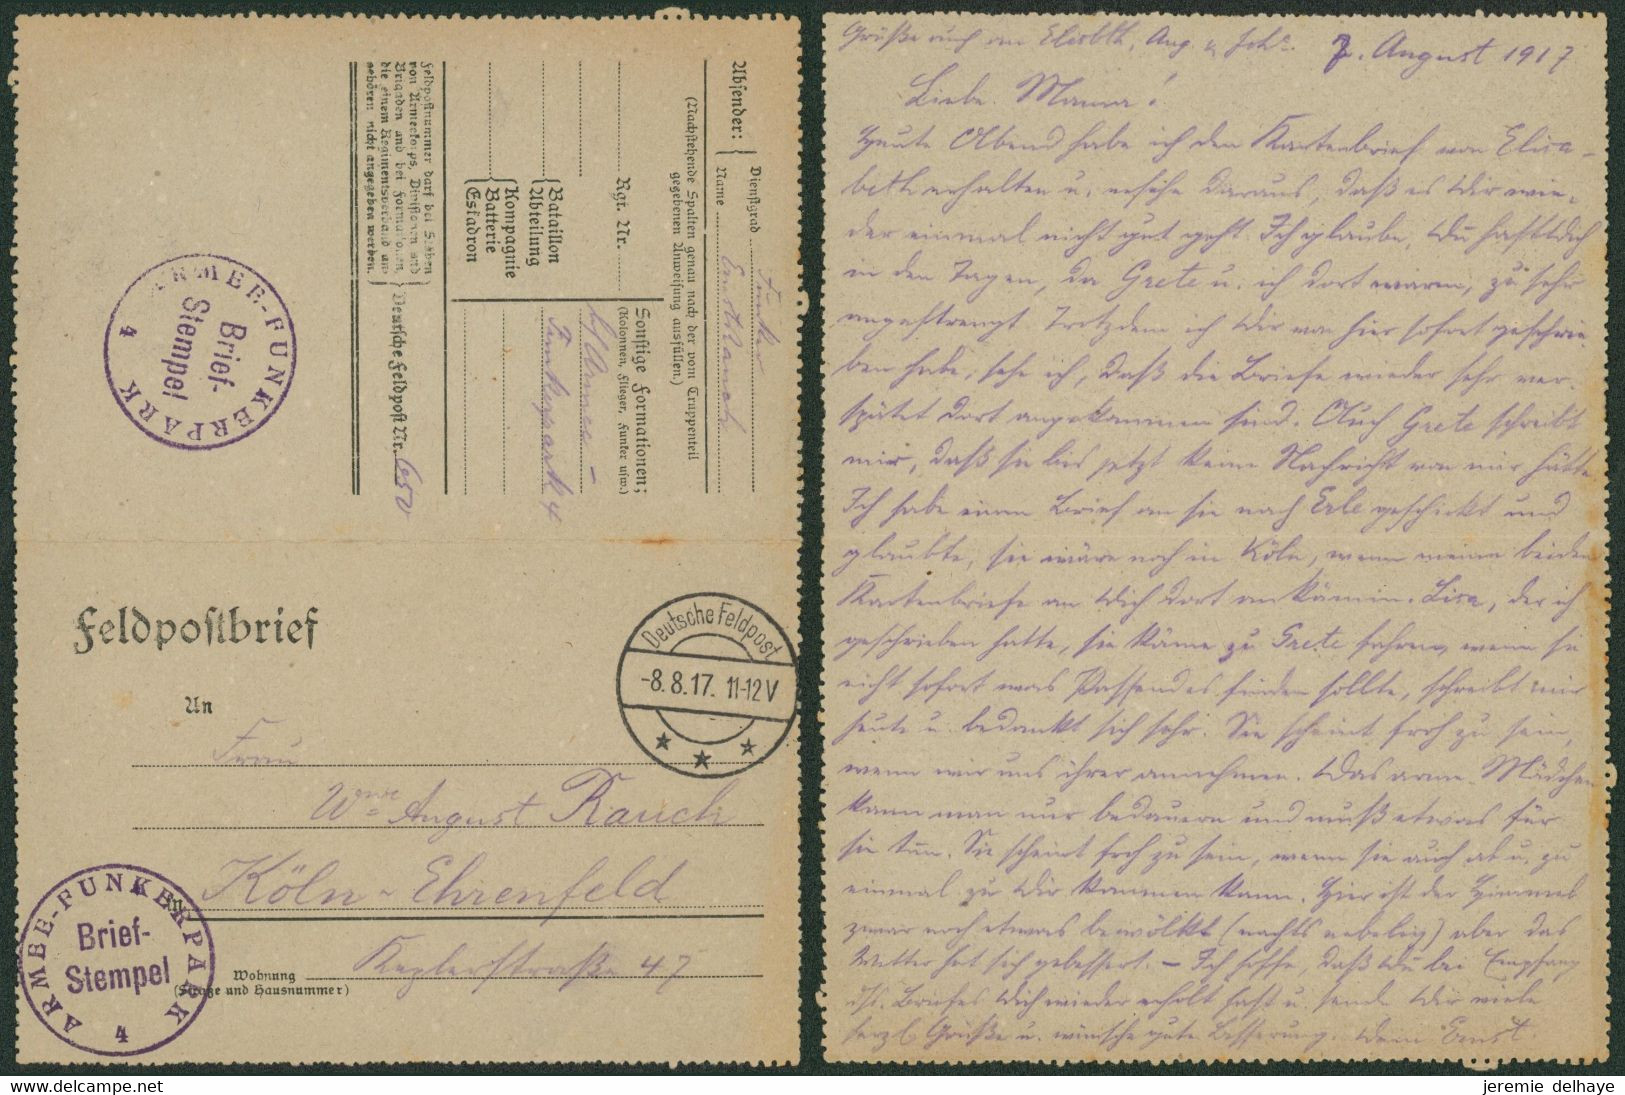 Absender:
Dienstgrad Funker
Name Ernst Rauch
(Nachstehende Spalten genau nach der vom Truppenteil
gegebenen Anweisung ausfüllen.)
Rgt. Nr.
Bataillon
Abteilung
Kompagnie
Batterie
Eskadron
Sonstige Formationen;
(Kolonnen, Flieger, Funker usw.)
b/Armee-
Funkerpark 4
Feldpostnummer darf bei Stäben
von Armeekorps, Divisionen und
Brigaden und bei Formationen,
die einem Regimentsverband an-
gehören nicht angegeben werden.
Deutsche Feldpost Nr. 650
ARMEE-FUNKERPARK
Brief-
Stempel
4
Feldpostbrief
Deutsche Feldpost
-8.8.17. 11-12V
An
Frau
Wwe August Rauch
Köln-Ehrenfeld
Wohnung Keplerstraße 47
(Straße und Hausnummer)
ARMEE-FUNKERPARK
Brief-
Stempel
4
Grüße auch an Elisbth, Aug u. Joh. 7. August 1917
Liebe Mama!
Heute Abend habe ich den Kartenbrief von Elisa-
beth erhalten u. ersehe daraus, daß es Dir wie-
der einmal nicht gut geht. Ich glaube, Du hast Dich
in den Tagen, da Grete u. ich dort waren, zu sehr
angestrengt. Trotzdem ich Dir von hier sofort geschrie-
ben habe, sehe ich, daß die Briefe wieder sehr ver-
spätet dort angekommen sind. Auch Grete schreibt
mir, daß sie bis jetzt keine Nachricht von mir hätte
Ich habe einen Brief an sie nach Erle geschickt und
glaubte, sie wäre noch in Köln, wenn meine beiden
Kartenbriefe an Dich dort ankämen. Lisa, der ich
geschrieben hatte, sie könne zu Grete fahren, wenn sie
nicht sofort was Passendes finden sollte, schreibt mir
heute u. bedankt sich sehr. Sie scheint froh zu sein,
wenn wir uns ihrer annehmen. Das arme Mädchen
kann man nur bedauern und muß etwas für
sie tun. Sie scheint froh zu sein, wenn sie auch ab u. zu
einmal zu Dir kommen kann. Hier ist der Himmel
zwar noch etwas bewölkt (nachts nebelig) aber das
Wetter hat sich gebessert. – Ich hoffe, daß Du bei Empfang
ds. Briefes Dich wieder erholt hast u. sende Dir viele
herzl. Grüße u. wünsche gute Besserung. Dein Ernst.
www.delcampe.net
jeremie delhaye